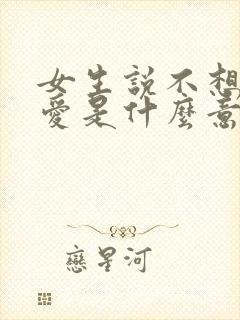 女生説不想
愛是什麼意
戀星河